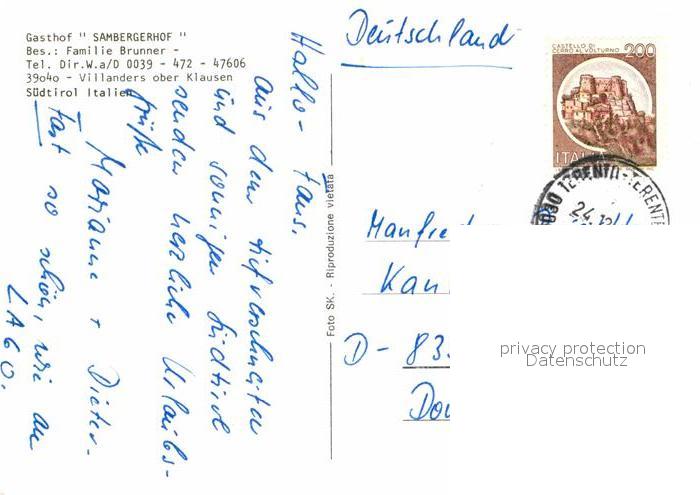 Gasthof " SAMBERGERHOF "
Bes.: Familie Brunner -
Tel. Dir.W.a/D 0039 - 472 - 47606
39o4o - Villanders ober Klausen
Südtirol Italien
Hallo-Fans,
aus dem tiefverschneiten
und sonnigen Südtirol
senden herzliche Urlaubs-
grüße
Marianne + Dieter.
Fast so schön, wie am
LAGO.
Foto SK. - Riproduzione vietata
Deutschland
CASTELLO DI
CERRO AL VOLTURNO
200
ITALIA
TERENTO-TERENTEN
24.
Manfre
Kan
D - 83.
privacy protection
Datenschutz